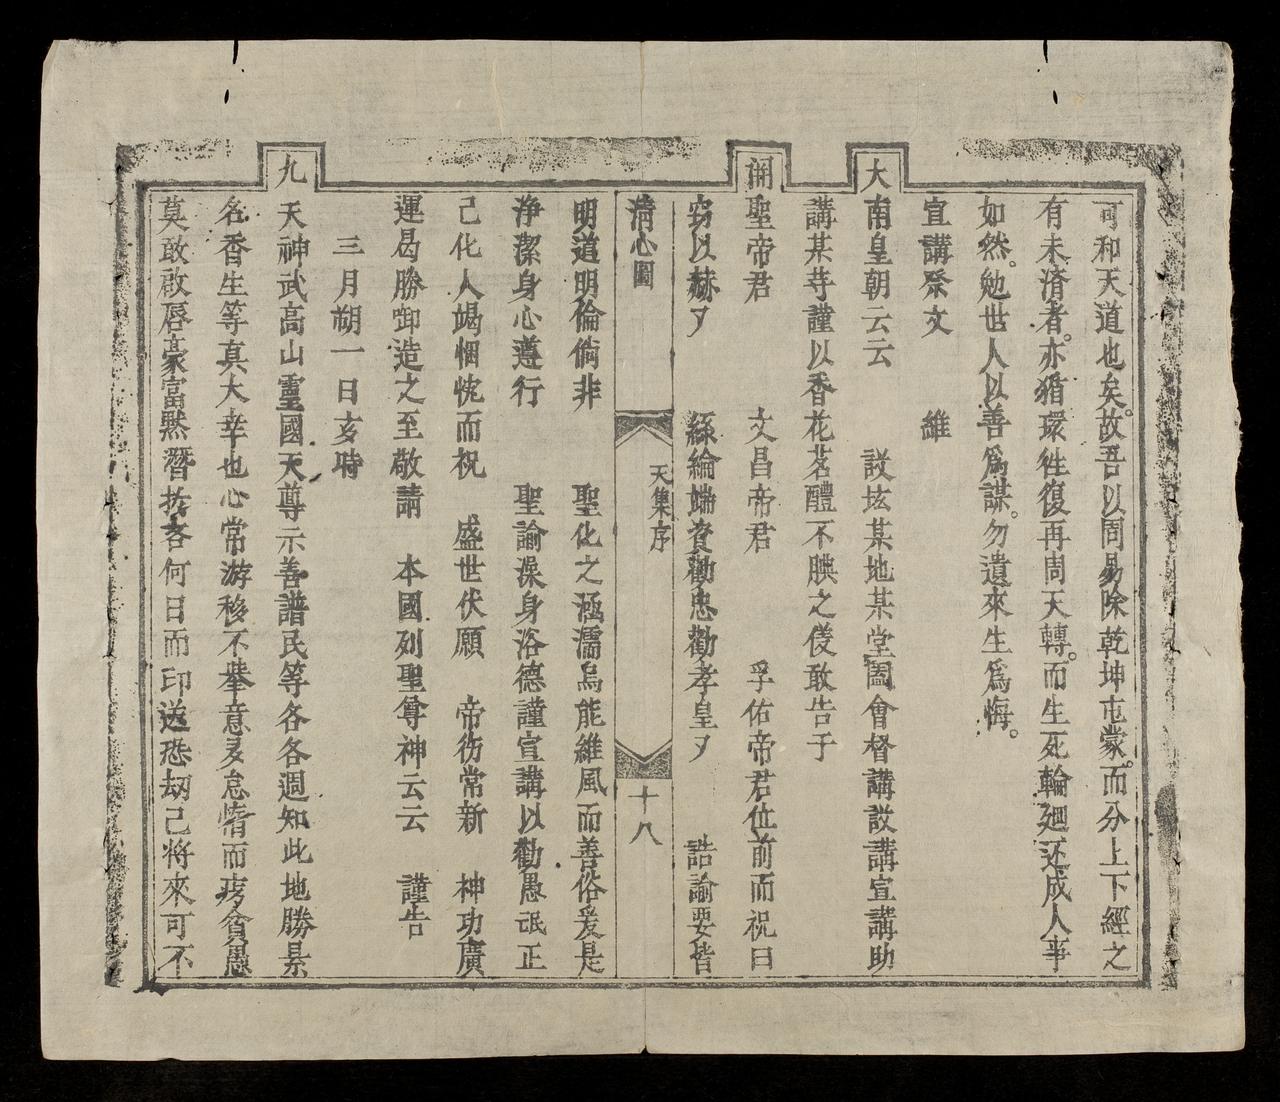 可和天道也矣。故吾以周易除乾坤屯蒙。而分上下經之
有未済者。亦循環徃復再周天轉。而生死輪廻还成人事
如然。勉世人以善爲謀。勿遺來生爲悔。
宣講祭文 維
大南皇朝云云 設坛某地某堂闔會督講設講宣講助
講某等謹以香花茗醴不腆之儀敢告于
開聖帝君 文昌帝君 孚佑帝君位前而祝曰
窃以赫〻 絲綸端資勸忠勸孝皇〻 誥諭要皆
清心圖 天集序 十八
明道明倫倘非 聖化之涵濡烏能維風而善俗爰是
浄潔身心遵行 聖諭澡身浴德謹宣講以勸愚氓正
己化人竭悃忱而祝 盛世伏願 帝衜常新 神功廣
運曷勝御造之至敬請 本國列聖尊神云云 謹告
三月朔一日亥時
九天神武高山靈國天尊示善譜民等各各週知此地勝景
名香生等真大幸也心常游移不舉意炁怠惰而疾貧愚
莫敢啟唇豪富黙潛抚吝何日而印送恐刼己將來可不